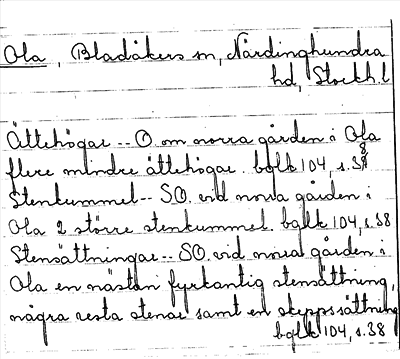 Ola, Bladåkers sn, Närdinghundra
hd, Stockh. l
Ättehögar -- O. om norra gården i Ola
flere mindre ättehögar. bglk 104, s. 38
Stenkummel -- SO. vid norra gården i
Ola 2 större stenkummel. bglk 104, s. 38
Stensättningar -- SO. vid norra gården i
Ola en nästan fyrkantig stensättning,
några resta stenar samt en skeppssättning
bglk 104, s. 38